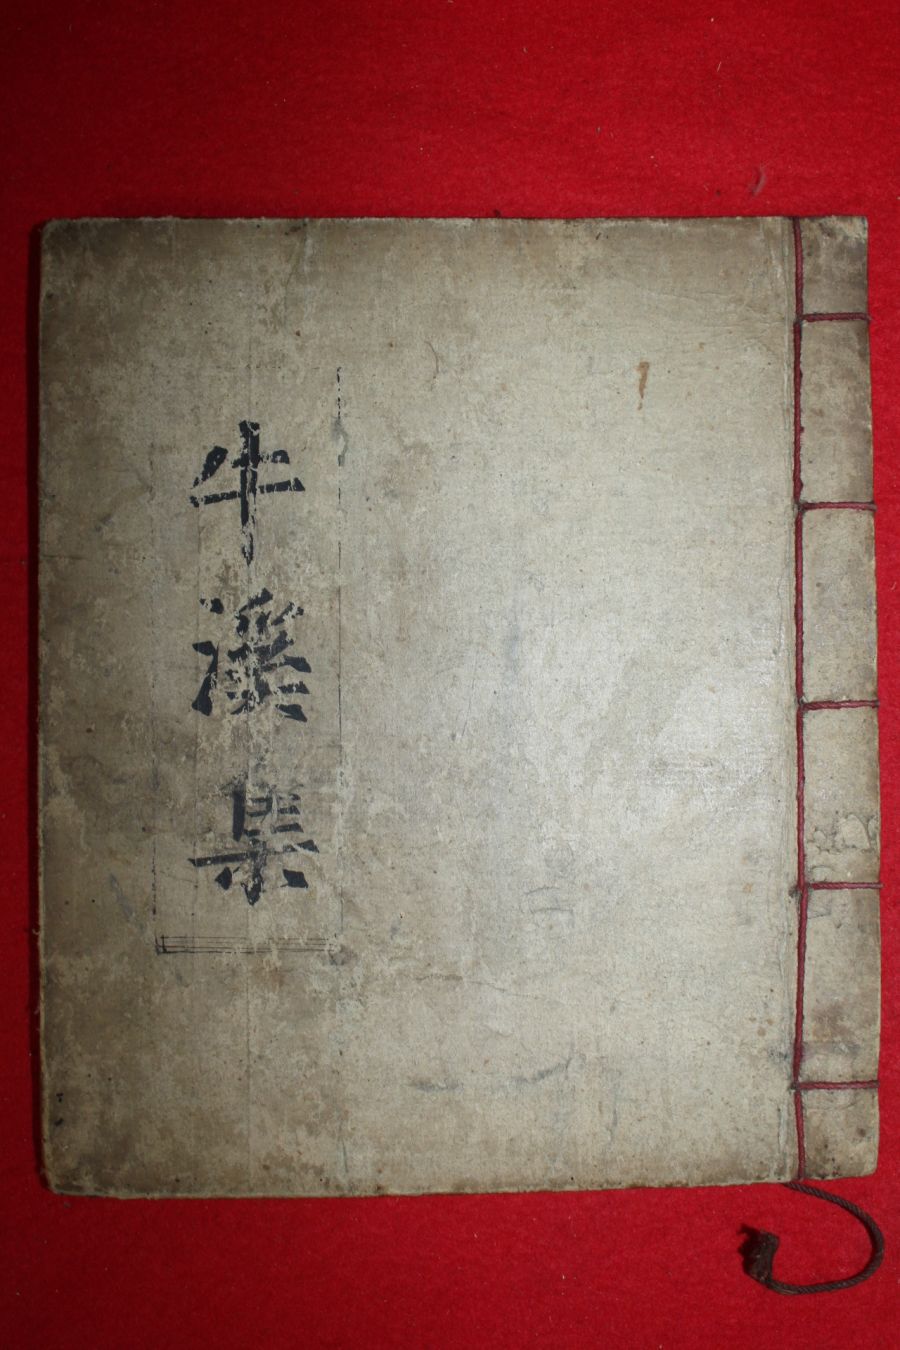 牛溪集